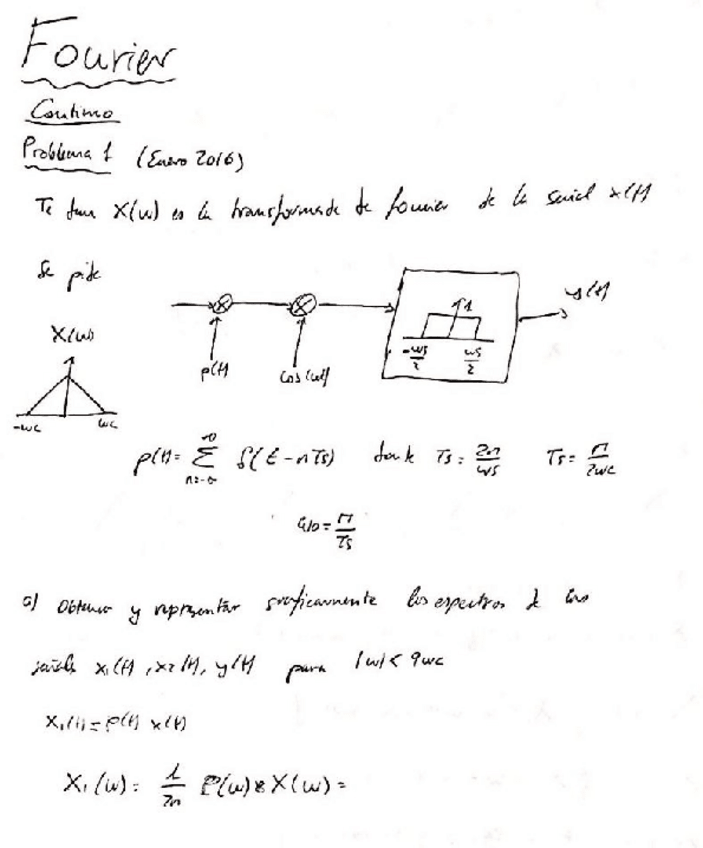 Fourier
Continuo
Problema 1 (Enero 2016)
X(w) es la transformada de fourier de la señal x(t)
Se pide
X(w)
-wc wc
p(t)
cos(w
1
-ws/2 ws/2
y(t)
p(t) = ∑ n=-∞ ∞ δ(t-nTs) donde Ts = 2π/ws Ts = π/2wc
= π/Ts
a) Obtener y representar graficamente los espectros de las
señales x1(t), x2(t), y(t) para |w| < 9wc
X1(t) = p(t) x(t)
X1(w) = 1/2π P(w) * X(w) =